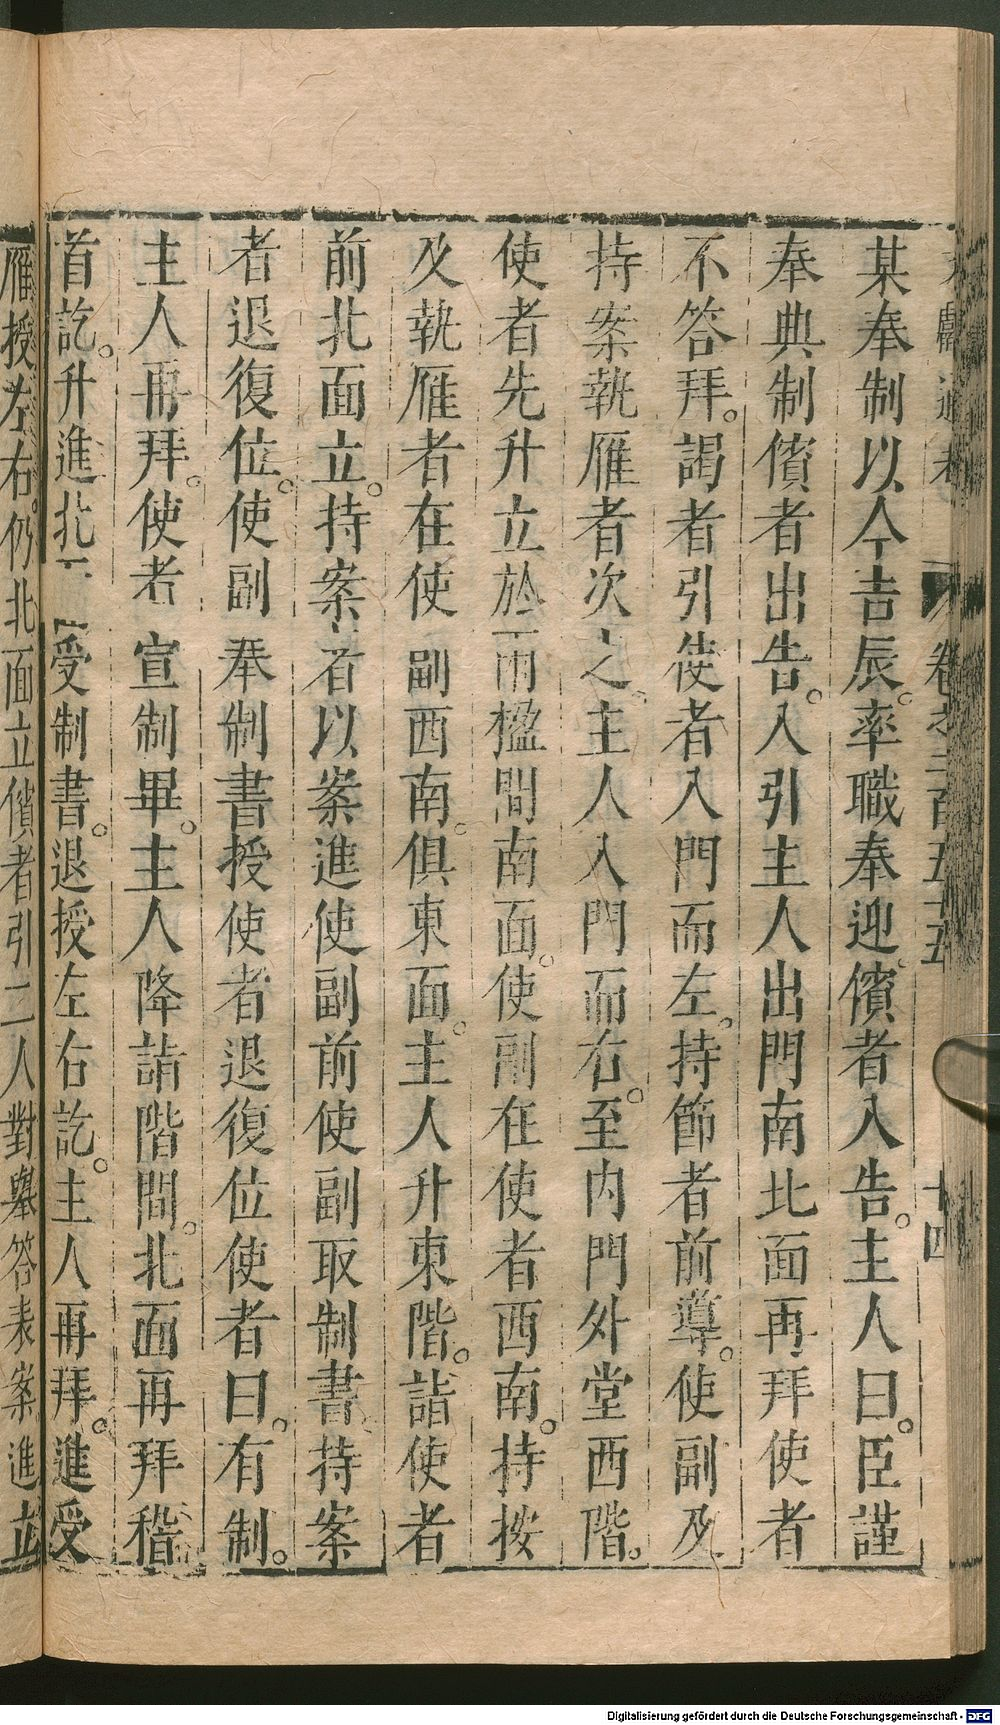 某奉制以今吉辰。率職奉迎。儐者入告。主人曰。臣謹
奉典制儐者出告。入引主人出門南北面再拜使者
不答拜。謁者引使者入門而左。持節者前導。使副及
持案執雁者次之。主人入門而右。至内門外堂西階。
使者先升立於兩楹間南面。使副在使者西南。持按
及執雁者在使副西南。俱東面。主人升東階。詣使者
前北面立。持案者以案進使副前使副取制書持案
者退復位。使副奉制書授使者退復位使者曰。有制。
主人再拜。使者宣制畢。主人降詣階間。北面再拜稽
首訖。升進北面受制書。退授左右訖。主人再拜。進受
雁授左右。仍北面立儐者引二人對舉答表案進立
文獻通考 卷之二百五十五 十四
Digitalisierung gefördert durch die Deutsche Forschungsgemeinschaft - DFG